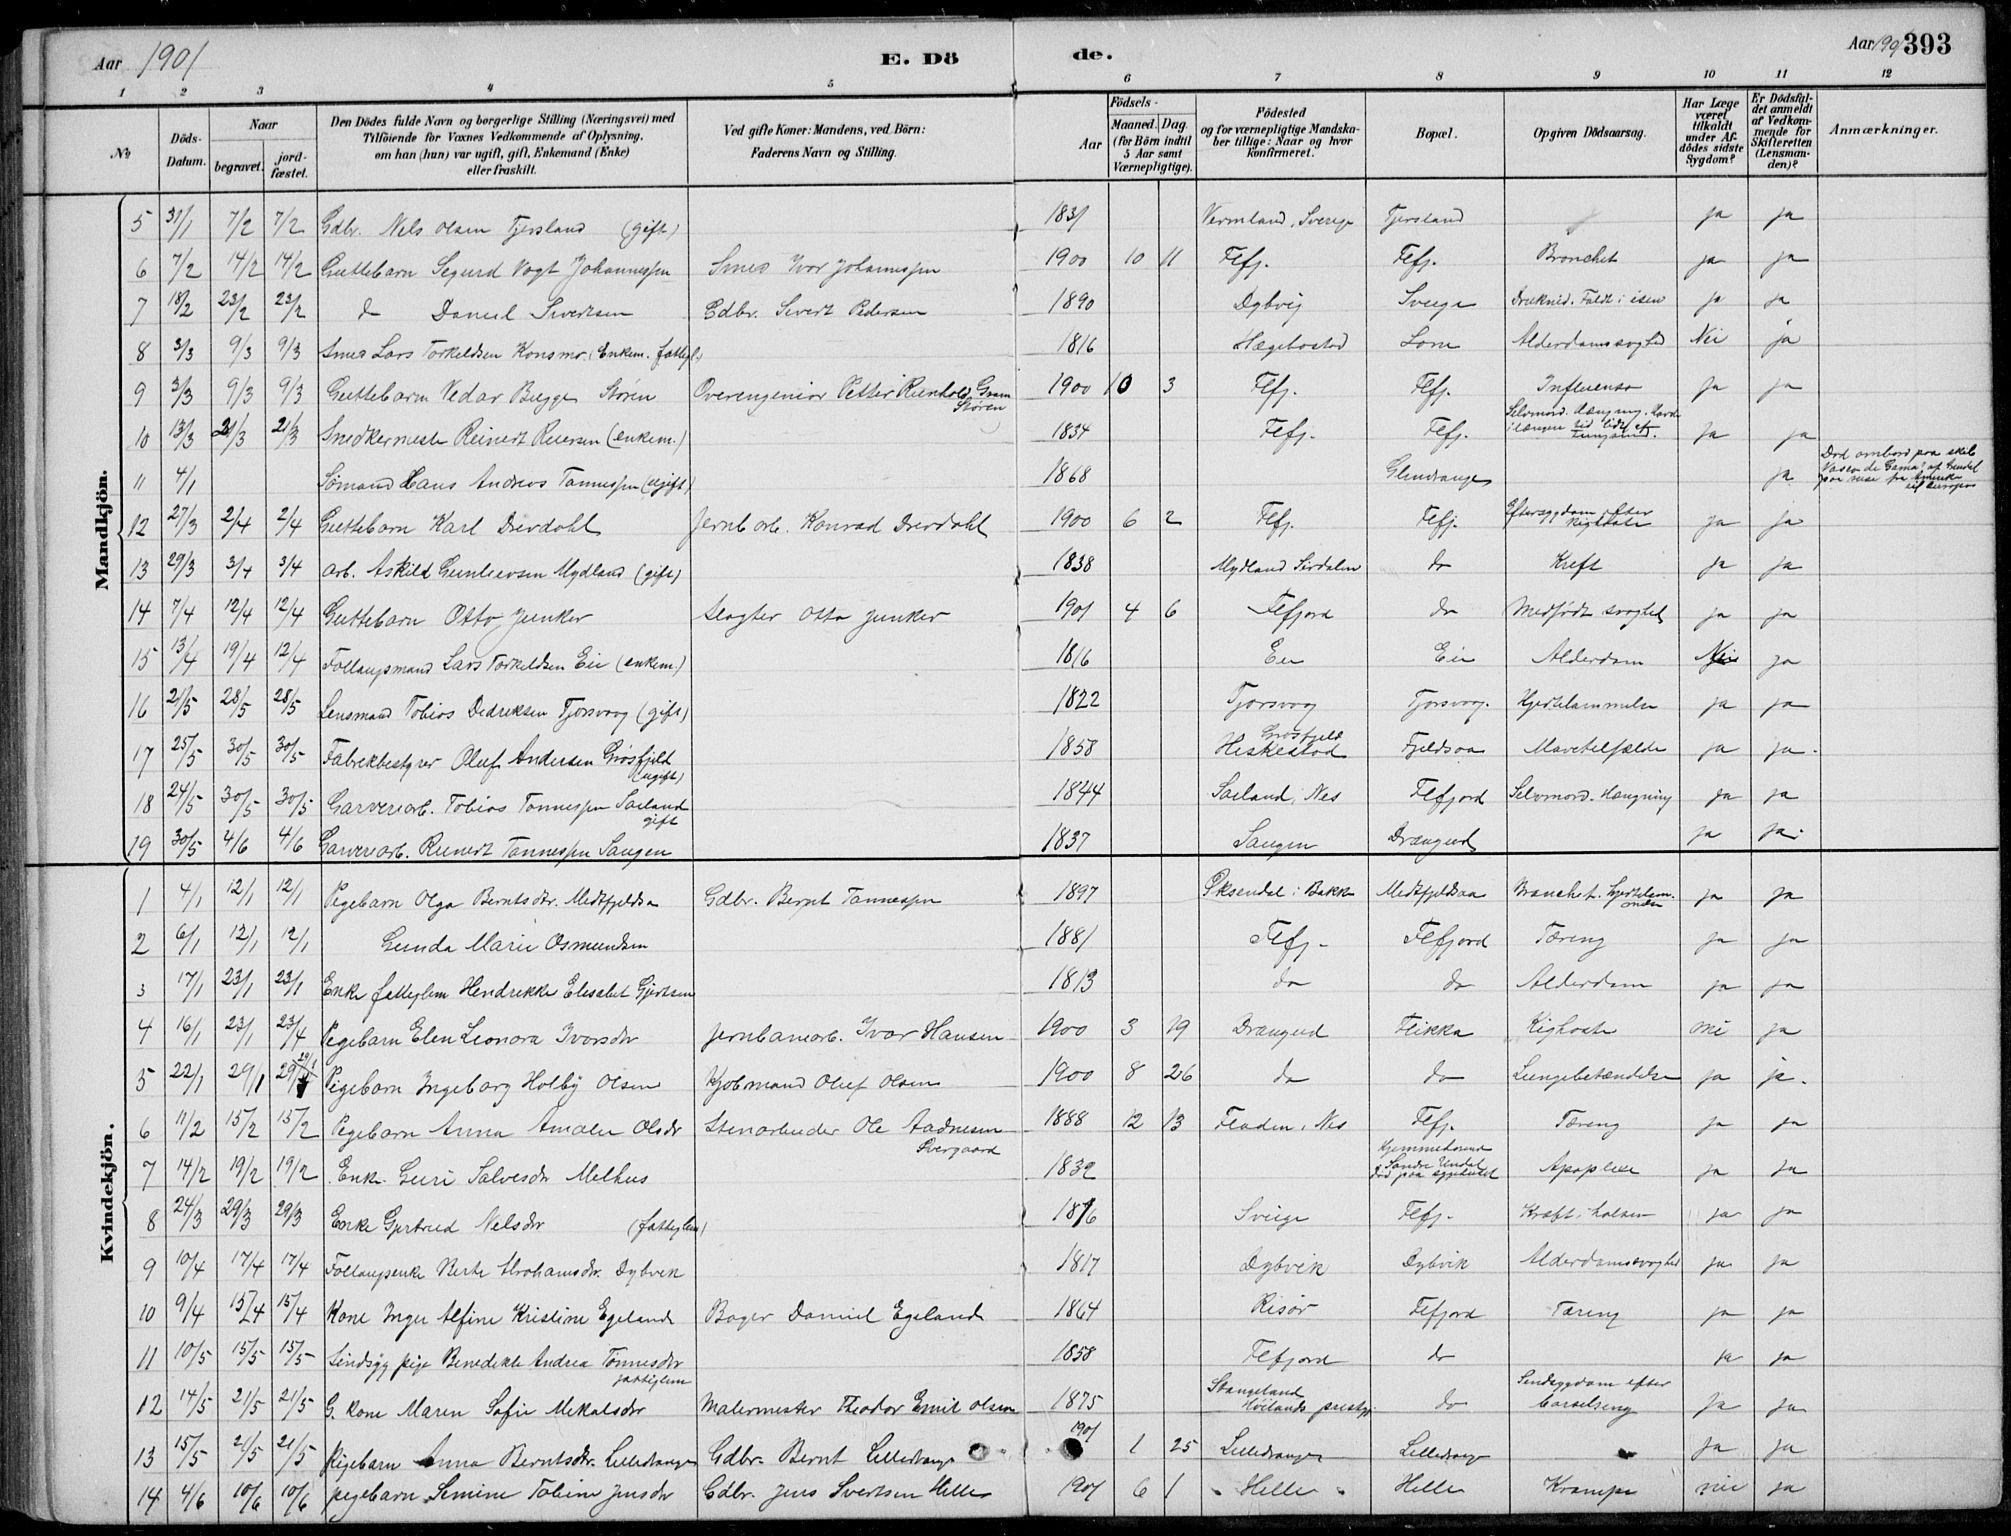 Aar 1901
E. Dö
de.
Aar 1901 393
1 2 3 4 5 6 7 8 9 10 11 12
№
Döds-Datum.
Naar
begravet.
jord-fæstet.
Den Dödes fulde Navn og borgerlige Stilling (Næringsvei) med
Tilföiende for Voxnes Vedkommende af Oplysning,
om han (hun) var ugift, gift, Enkemand (Enke)
eller fraskilt.
Ved gifte Koner: Mandens, ved Börn:
Faderens Navn og Stilling.
Födsels-
Aar
Maaned. Dag
(for Börn indtil
5 Aar samt
Værnepligtige).
Födested
og for værnepligtige Mandska-
ber tillige: Naar og hvor
konfirmeret.
Bopæl.
Opgiven Dödsaarsag.
Har Læge
været
tilkaldt
under Af-
dödes sidste
Sygdom?
Er Dödsfal-
det anmeldt
af Vedkom-
mende for
Skifteretten
(Lensman-
den)?
Anmærkninger.
Mandkjön.
5 31/1 7/2 7/2 Gdbr. Nels Olsen Tjersland (gift) 1831 Vermland, Sverige Tjersland ja ja
6 7/2 14/2 14/2 Guttebarn Segurd Vogt Johannessen Smed Ivar Johannessen 1900 10 11 Flfj. Flfj. Bronchit ja ja
7 18/2 23/2 23/2 do Daniel Sivertsen Gdbr. Sivert Pedersen 1890 Dybvig Sveige Druknet. Faldt i isen ja ja
8 3/3 9/3 9/3 Smed Lars Torkeldsen Konsmo. (Enkem. fattigl.) 1816 Hægebostad Lone Alderdomssvaghed Nei ja
9 3/3 9/3 9/3 Guttebarn Vedar Bugge Støren Overingeniør Petter Reinhold Gram Støren 1900 10 3 Flfj. Flfj. Influensa ja ja
10 13/3 21/3 21/3 Snedkermester Reinert Reiersen (enkem.) 1834 Flfj. Flfj. Selvmord. Hængning. Havde i længere tid lidt af tungsind. ja ja
11 4/1 Sømand Hans Andreas Tønnessen (ugift) 1868 Glendrange ja Død ombord paa skib Vasco da Gama, af Grendal paa reise fra Amerika til Europa
12 27/3 2/4 2/4 Guttebarn Karl Drevdahl Jernb.arb. Konrad Drevdahl 1900 6 2 Flfj. Flfj. Eftersygdom efter Kighoste ja ja
13 29/3 3/4 3/4 Arb. Askild Gunleevsen Mydland (gift) 1838 Mydland Sirdalen do Kreft ja ja
14 7/4 12/4 12/4 Guttebarn Otto Junker Slagter Otto Junker 1901 4 6 Flfjord do Medfødt svaghed ja ja
15 13/4 19/4 12/4 Follaugsmand Lars Torkeldsen Eie (enkem.) 1816 Eie Eie Alderdom Nei ja
16 21/5 28/5 28/5 Lensmand Tobias Dedreksen Tjørsvaag (gift) 1822 Tjorsvog Tjorsvog. Hjertelammelse ja ja
17 25/5 30/5 30/5 Fabrikbestyrer Oluf Andersen Grøsfjeld (ugift) 1858 Grøsfjeld Heskestad Fjeldsaa Mavetilfælde ja ja.
18 24/5 30/5 30/5 Garveriarb. Tobias Tønnessen Søeland gift 1844 Søeland, Nes Flfjord Selvmord. Hængning ja ja
19 30/5 4/6 4/6 Garveriarb. Reinert Tønnessen Saugen 1837 Saugen Drangeid ja ja.
Kvindekjön.
1 4/1 12/1 12/1 Pigebarn Olga Berntsdtr. Medtfjeldsa Gdbr. Bernt Tønnessen 1897 Øksendal i Bakke Medtfjeldsaa Bronchit. Hjertelammelse ja ja
2 6/1 12/1 12/1 Gunda Marie Osmundsen 1881 Flfj. Flfjord Tæring ja ja
3 17/1 23/1 23/1 Enke fattiglem Hendrekke Elesabet Gjertsen 1813 do do Alderdom ja ja
4 16/1 23/1 23/4 Pigebarn Elen Leonora Ivarsdtr Jernbanearb. Ivar Hansen 1900 3 19 Drangeid Flikka Kighoste nei ja
5 22/1 29/1 29/1 Pigebarn Ingeborg Holby Olsen Kjøbmand Oluf Olsen 1900 8 26 do do Lungebetændelse ja ja.
6 11/2 15/2 15/2 Pigebarn Anna Amalie Olsdtr Stenarbeider Ole Aadnesen Overgaard 1888 12 13 Floden, Nes Flfj. Tæring ja ja
7 14/2 19/2 19/2 Enke. Guri Salvesdtr Melhus 1832 Hjemmehørende Søndre Undal Død paa sygehuset Apoplexi ja ja
8 24/3 29/3 29/3 Enke Gjertrud Nelsdtr (fattiglem) 1816 Sveige Flfj. Kræft i halsen ja ja
9 10/4 17/4 17/4 Follaugsenke Berte Abrahamsdtr. Dybvik 1817 Dybvik Dybvik Alderdomssvaghed ja ja
10 9/4 15/4 15/4 Kone Inger Alfine Kristine Egeland Bager Daniel Egeland 1864 Risør Flfjord Tæring ja ja
11 10/5 15/5 15/5 Sindsyg pige Benedikte Andrea Tønnesdtr fattiglem 1858 Flfjord do ja ja
12 14/5 21/5 21/5 G. kone Maren Sofie Mekalsdtr Malermester Theodor Emil Olsen 1875 Stangeland Høilands prestgj. do Sendsygdom efter barselseng ja ja
13 15/5 21/5 21/5 Pigebarn Anna Berntsdtr. Lilledrange Gdbr. Bernt Lilledrange 1901 1 25 Lilledrange Lilledrange ja ja
14 4/6 10/6 10/6 Pigebarn Semine Tobine Jensdtr Gdbr. Jens Sivertsen Helle 1901 6 1 Helle Helle Krampe nei ja